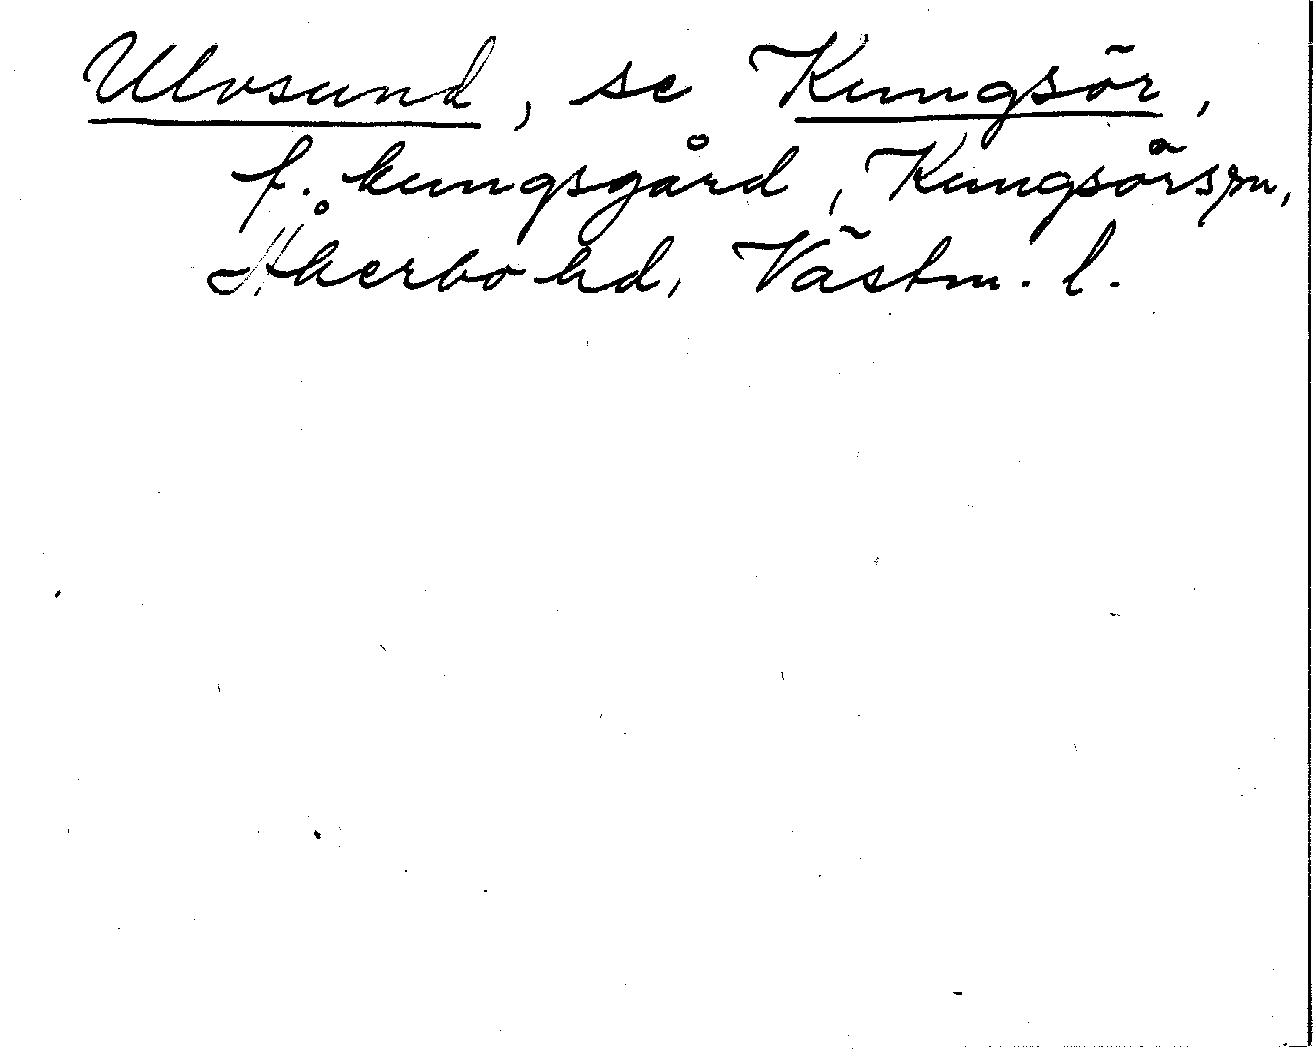 Ulvsund, se Kungsör,
f. kungsgård, Kungsörs sn,
Åkerbo hd, Västm. l.